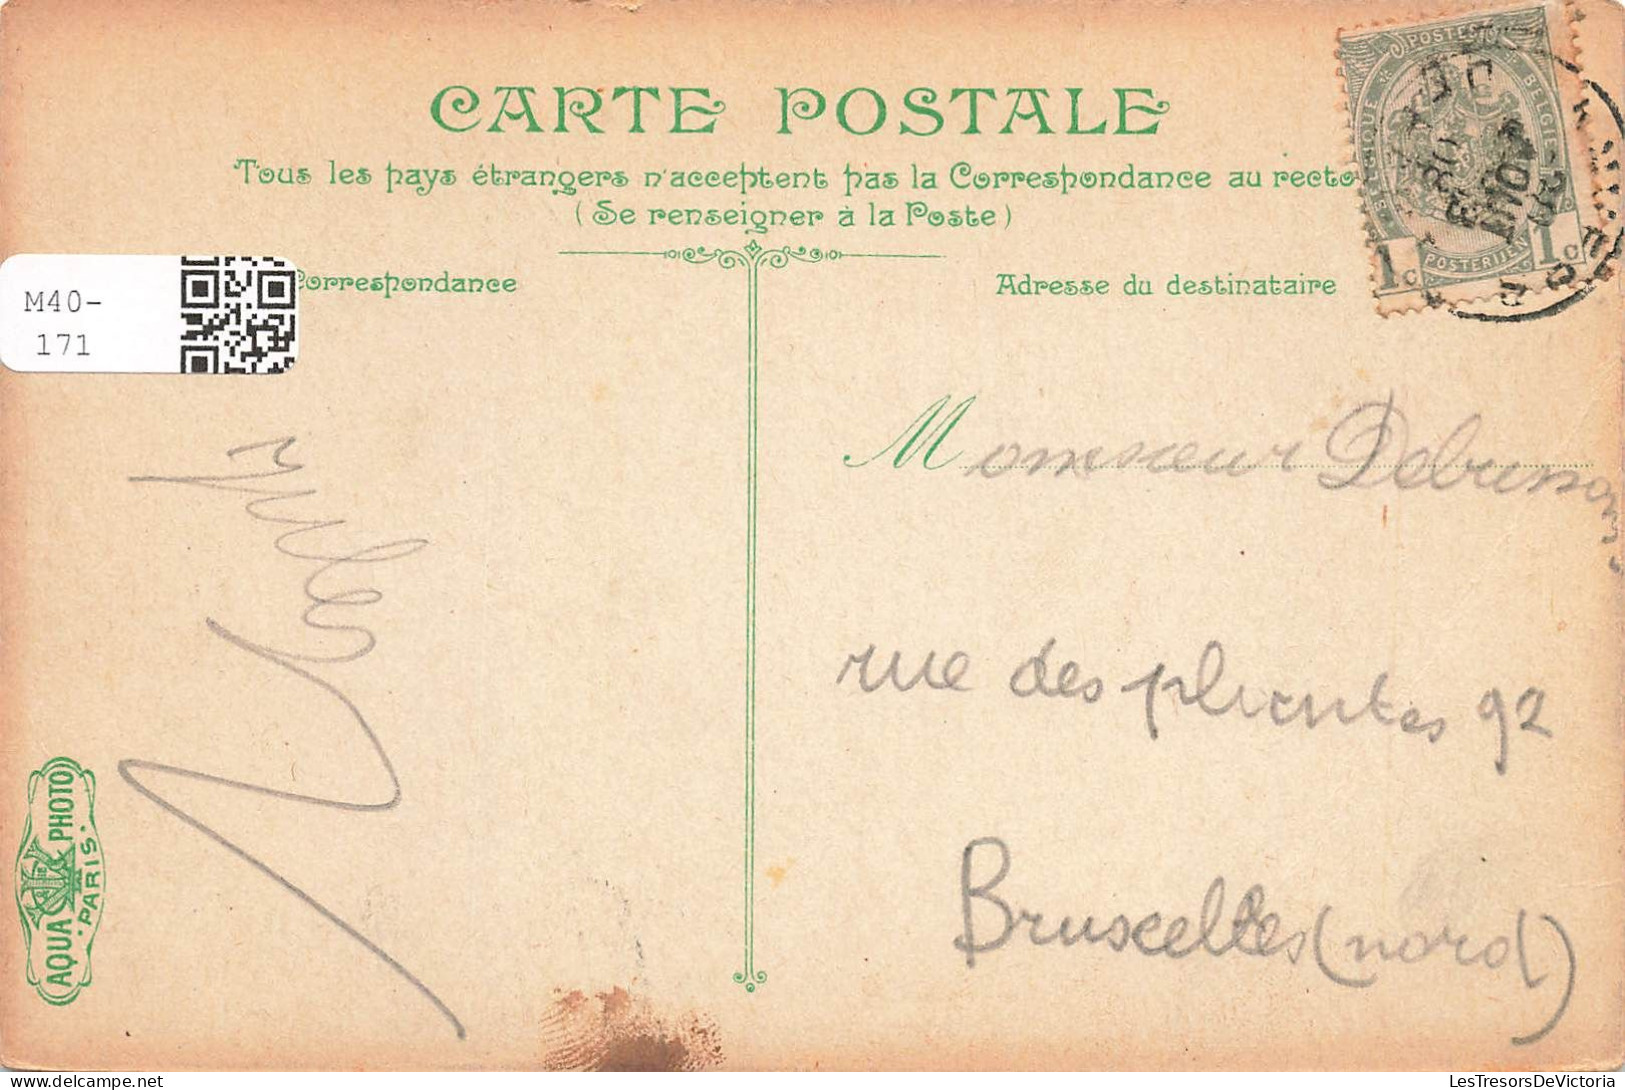 CARTE POSTALE
Tous les pays étrangers n'acceptent pas la Correspondance au recto
(Se renseigner à la Poste)
Correspondance
Adresse du destinataire
M40-
171
POSTES
BELGIQUE
BELGIE
POSTERIJEN
1c
1c
Monsieur
rue des plantes 92
Bruxelles (nord)
Jules
AQUA PHOTO
PARIS
LesTresorsDeVictoria